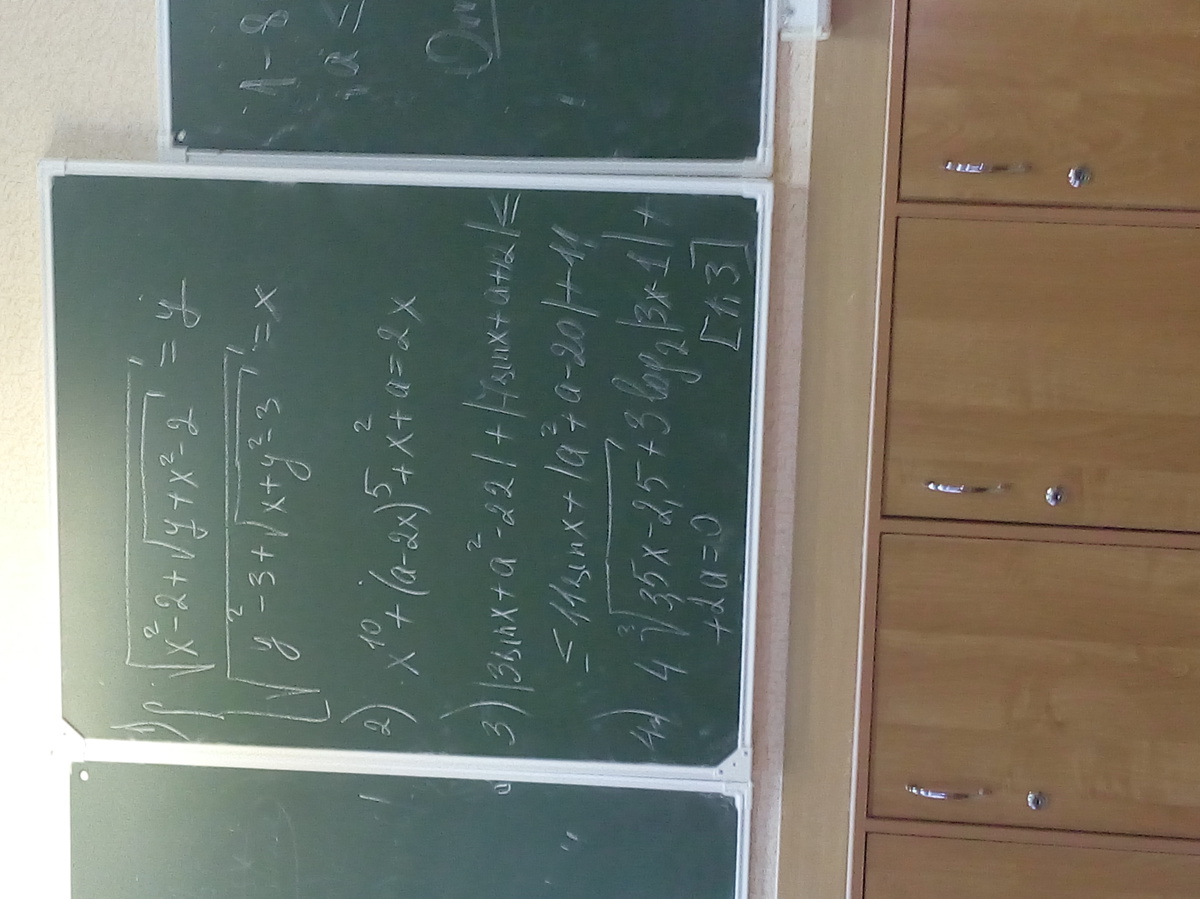 1) { √(x² - 2 + √(y + x² - 2)) = y
√(y² - 3 + √(x + y² - 3)) = x
2) x¹⁰ + (a - 2x)⁵ + x² + a = 2x
3) |3sinx + a² - 22| + |7sinx + a + 12| ≤
≤ 11sinx + |a² + a - 20| + 11
4) 4 ∛(3,5x - 2,5) + 3 log₂|3x - 1| +
+ 2a = 0 [1; 3]
1 - 8
a ≤